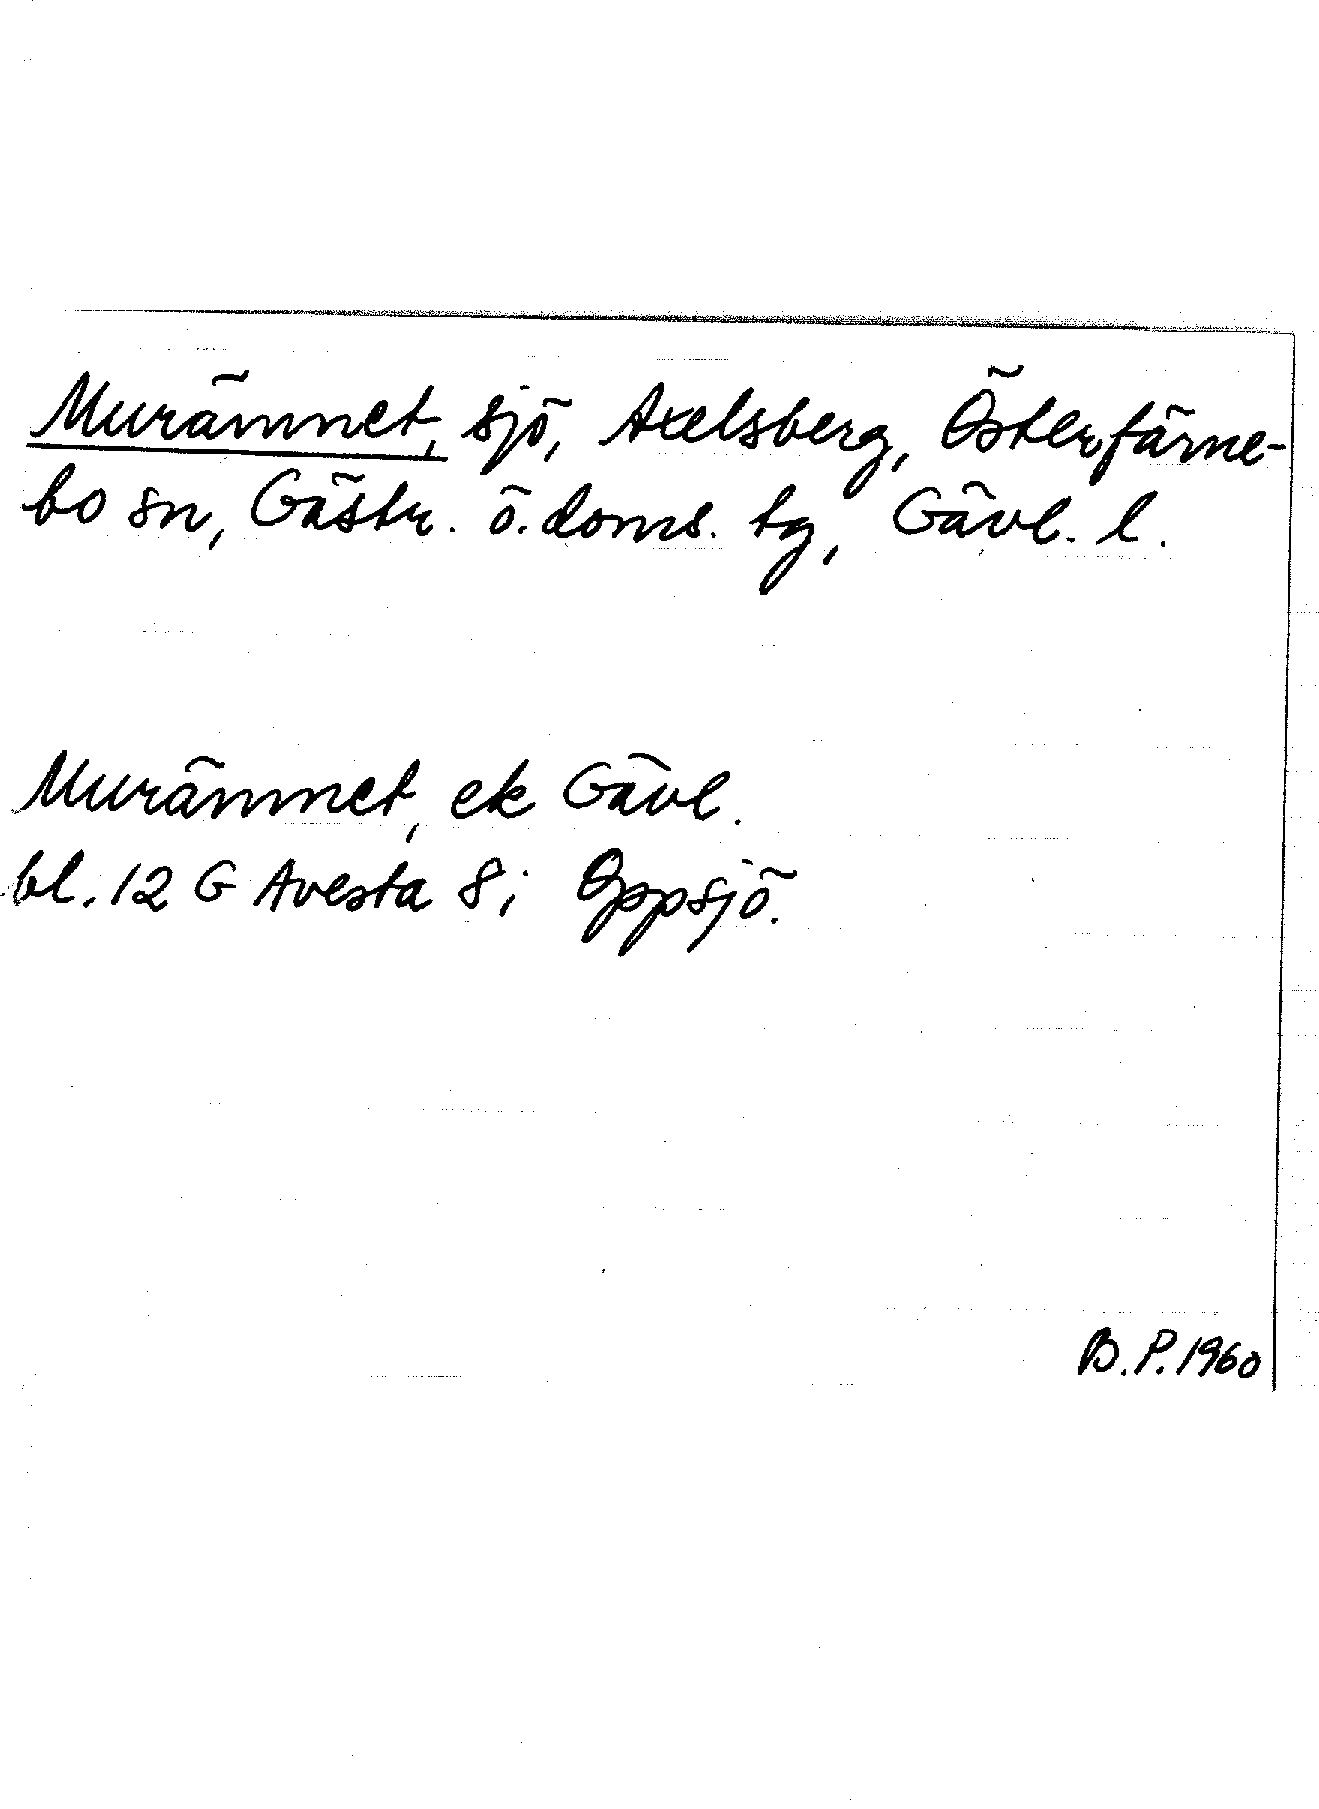 Murämnet, sjö, Axelsberg, Österfärne-
bo sn, Gästr. ö. doms. tg, Gävl. l.
Murämnet, ek Gävl.
bl. 12 G Avesta 8 i Oppsjö.
B.P. 1960